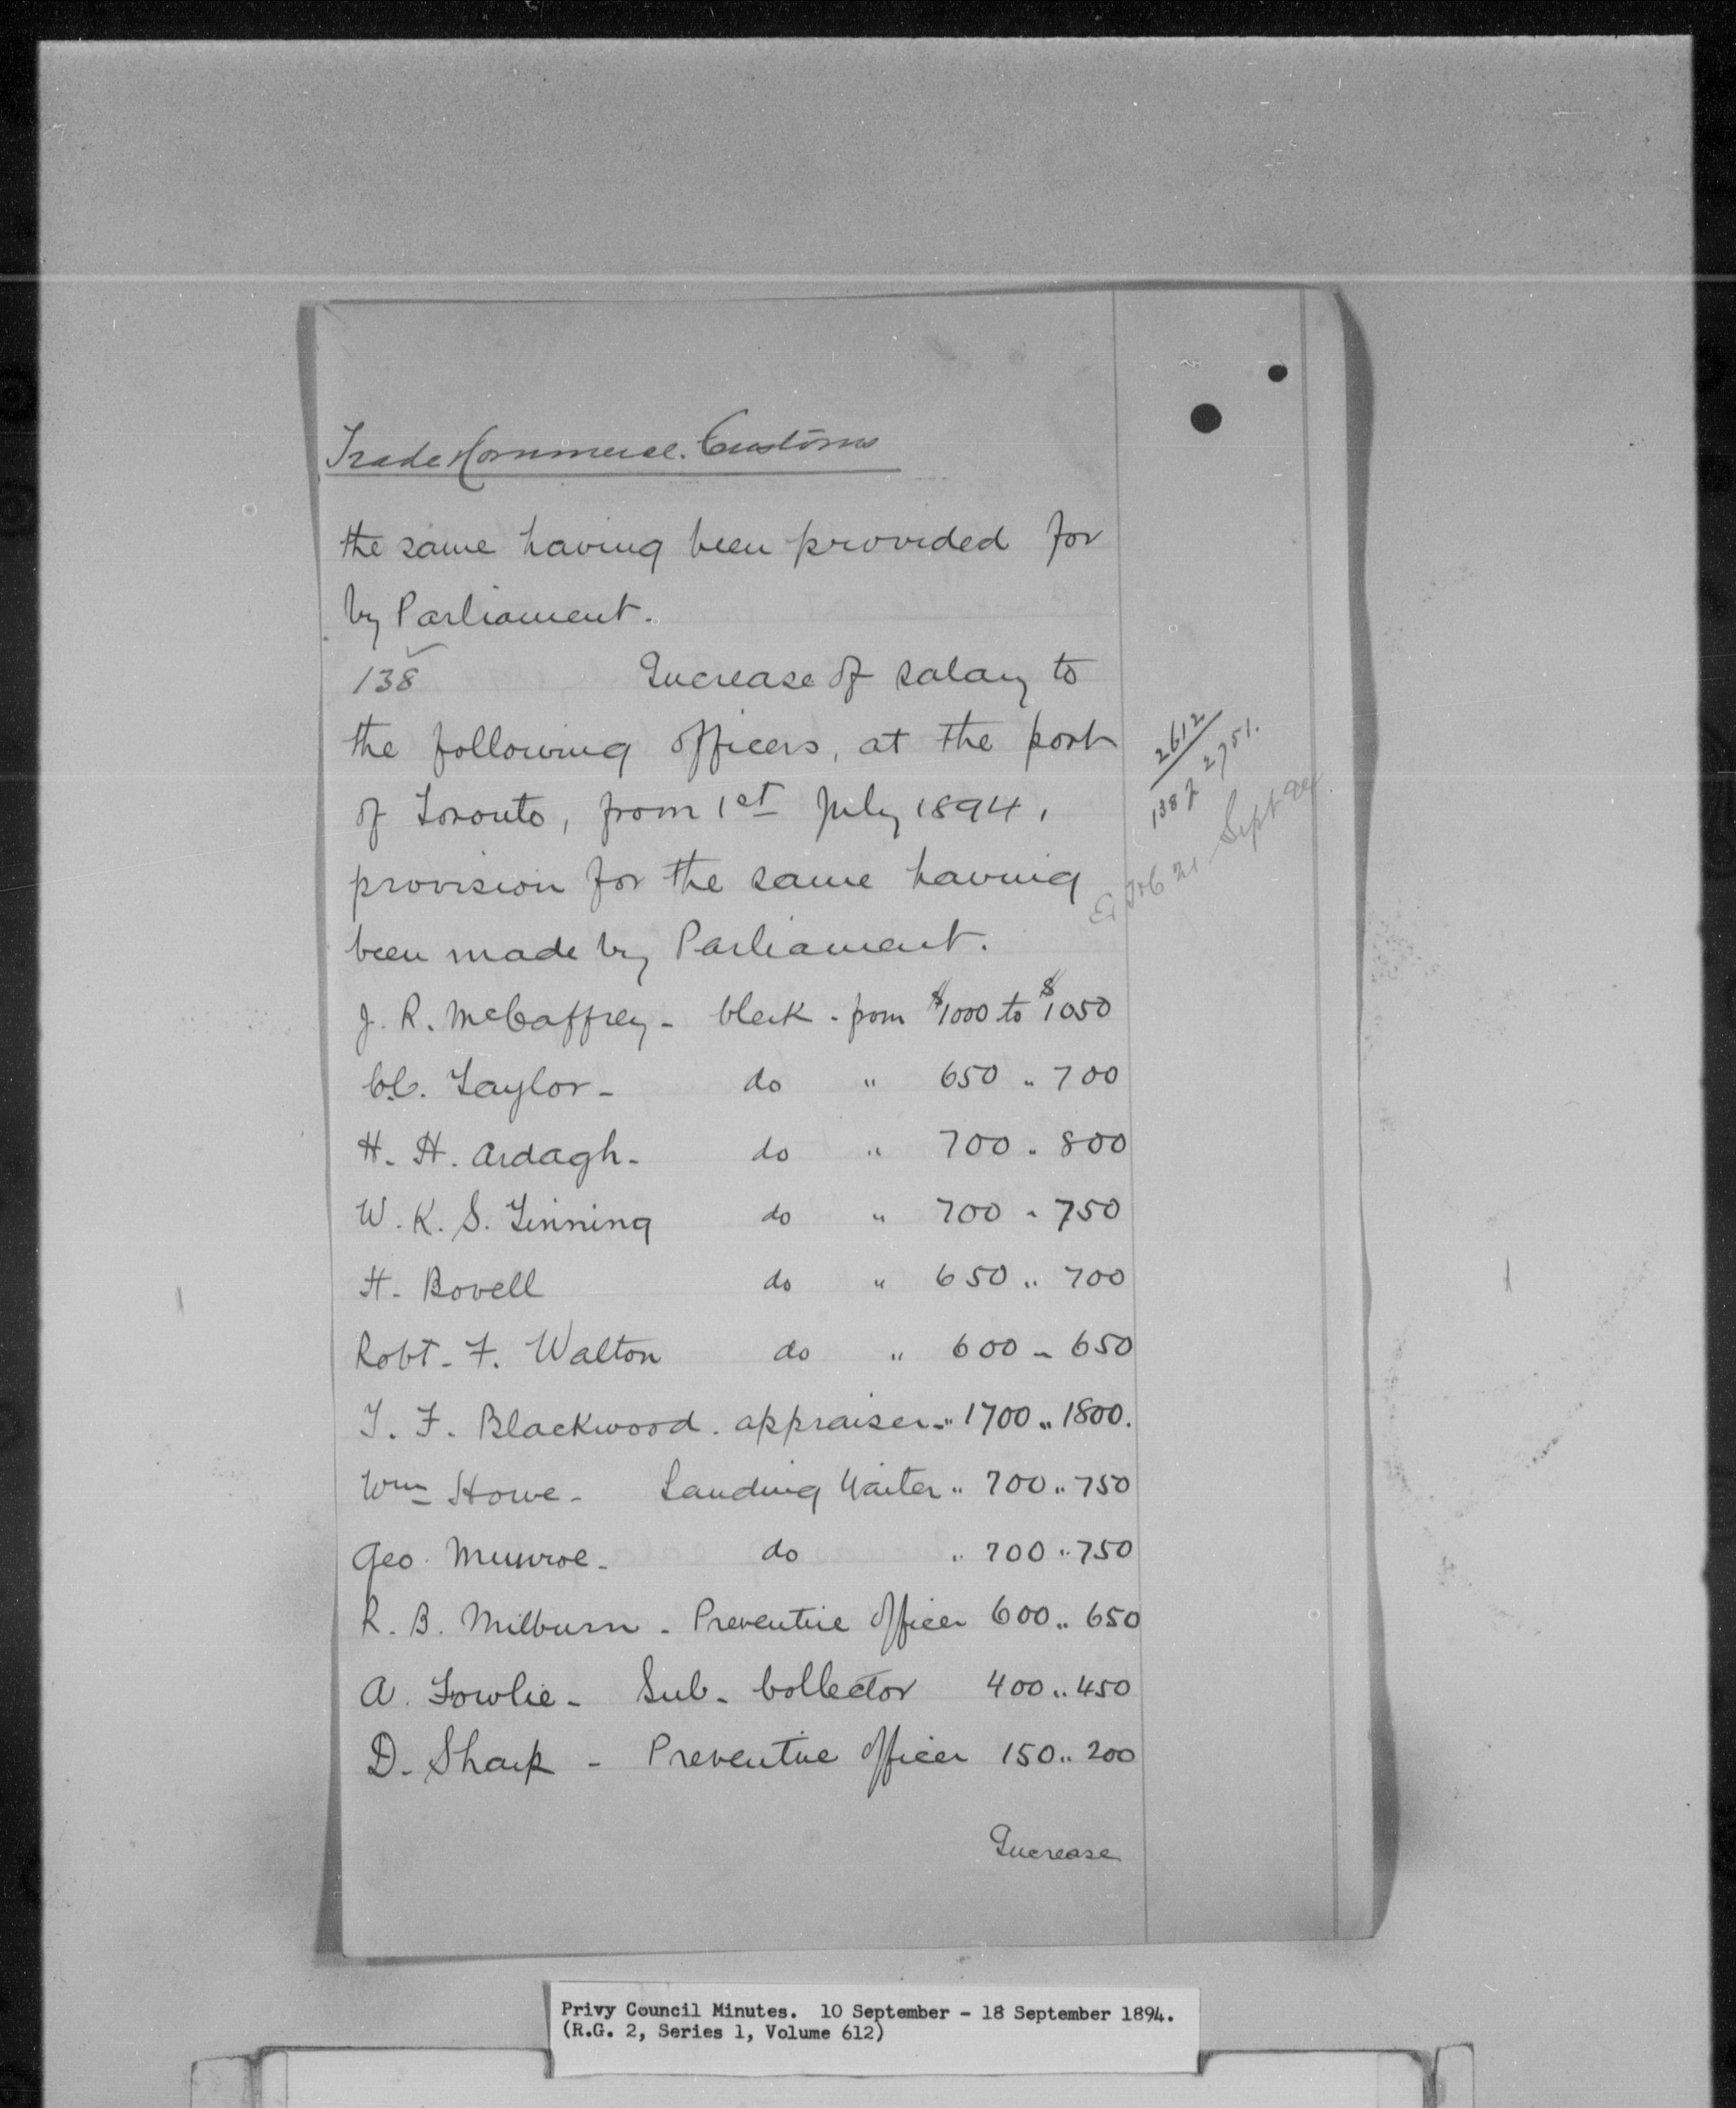 Trade & Commerce. Customs
the same having been provided for
by Parliament.
138 Increase of salary to
the following officers, at the port
of Toronto, from 1st July 1894,
provision for the same having
been made by Parliament.
J. R. McCaffrey - Clerk - from $1000 to $1050
C.C. Taylor - do " 650 " 700
H. H. Ardagh - do " 700 " 800
W. K. S. Tinning do " 700 " 750
H. Bovell do " 650 " 700
Robt. F. Walton do " 600 " 650
T. F. Blackwood. appraiser - " 1700 " 1800.
Wm Howe - Landing Waiter " 700 " 750
Geo. Munroe - do " 700 " 750
R. B. Milburn - Preventive Officer 600 " 650
A. Fowlie - Sub-Collector 400 " 450
D. Sharp - Preventive Officer 150 " 200
Increase
2612
138 J 2751.
Sept
Privy Council Minutes. 10 September - 18 September 1894.
(R.G. 2, Series 1, Volume 612)